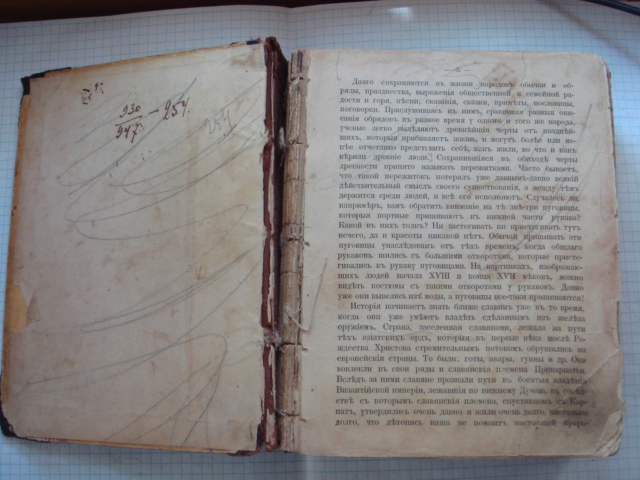 930
947
254.
254
Долго сохраняются въ жизни народовъ обычаи и об-
ряды, празднества, выраженія общественной и семейной ра-
дости и горя, пѣсни, сказанія, сказки, примѣты, пословицы,
поговорки. Прислушиваясь къ нимъ, сравнивая разныя опи-
санія обрядовъ въ разное время у одного и того же народа,
ученые легко выдѣляютъ древнѣйшія черты отъ позднѣй-
шихъ, которыя прибавляетъ жизнь, и могутъ болѣе или ме-
нѣе отчетливо представить себѣ, какъ жили, во что и какъ
вѣрили древніе люди. Сохранившіяся въ обиходѣ черты
древности принято называть пережитками. Часто бываетъ,
что такой пережитокъ потерялъ уже давнымъ-давно всякій
дѣйствительный смыслъ своего существованія, а между тѣмъ
держится среди людей, и всѣ его исполняютъ. Случалось ли,
напримѣръ, вамъ обратить вниманіе на тѣ двѣ-три пуговицы,
которыя портные пришиваютъ къ нижней части рукава?
Какой въ нихъ толкъ? Ни застегивать ни пристегивать тутъ
нечего, да и красоты никакой нѣтъ. Обычай пришивать эти
пуговицы унаслѣдованъ отъ тѣхъ временъ, когда обшлага
рукавовъ шились съ большими отворотами, которые присте-
гивались къ рукаву пуговицами. На картинкахъ, изображаю-
щихъ людей начала XVIII и конца XVII вѣковъ, можно
видѣть костюмы съ такими отворотами у рукавовъ. Давно
уже они вывелись изъ моды, а пуговицы все-таки пришиваются!
Исторія начинаетъ знать ближе славянъ уже въ то время,
когда они уже умѣютъ владѣть сдѣланнымъ изъ желѣза
оружіемъ. Страна, заселенная славянами, лежала на пути
тѣхъ азіатскихъ ордъ, которыя въ первые вѣка послѣ Ро-
ждества Христова стремительнымъ потокомъ обрушились на
европейскія страны. То были: готы, авары, гунны и др. Они
вовлекли въ свои ряды и славянскія племена Прикарпатья.
Вслѣдъ за ними славяне проникали пути въ богатыя владѣнія
Византійской имперіи, лежавшія по нижнему Дунаю, въ
съ которымъ славянскія племена, спустившись съ Кар-
патъ, утвердились очень давно и жили очень долго, настолько
долго, что лѣтопись наша не помнитъ настоящей